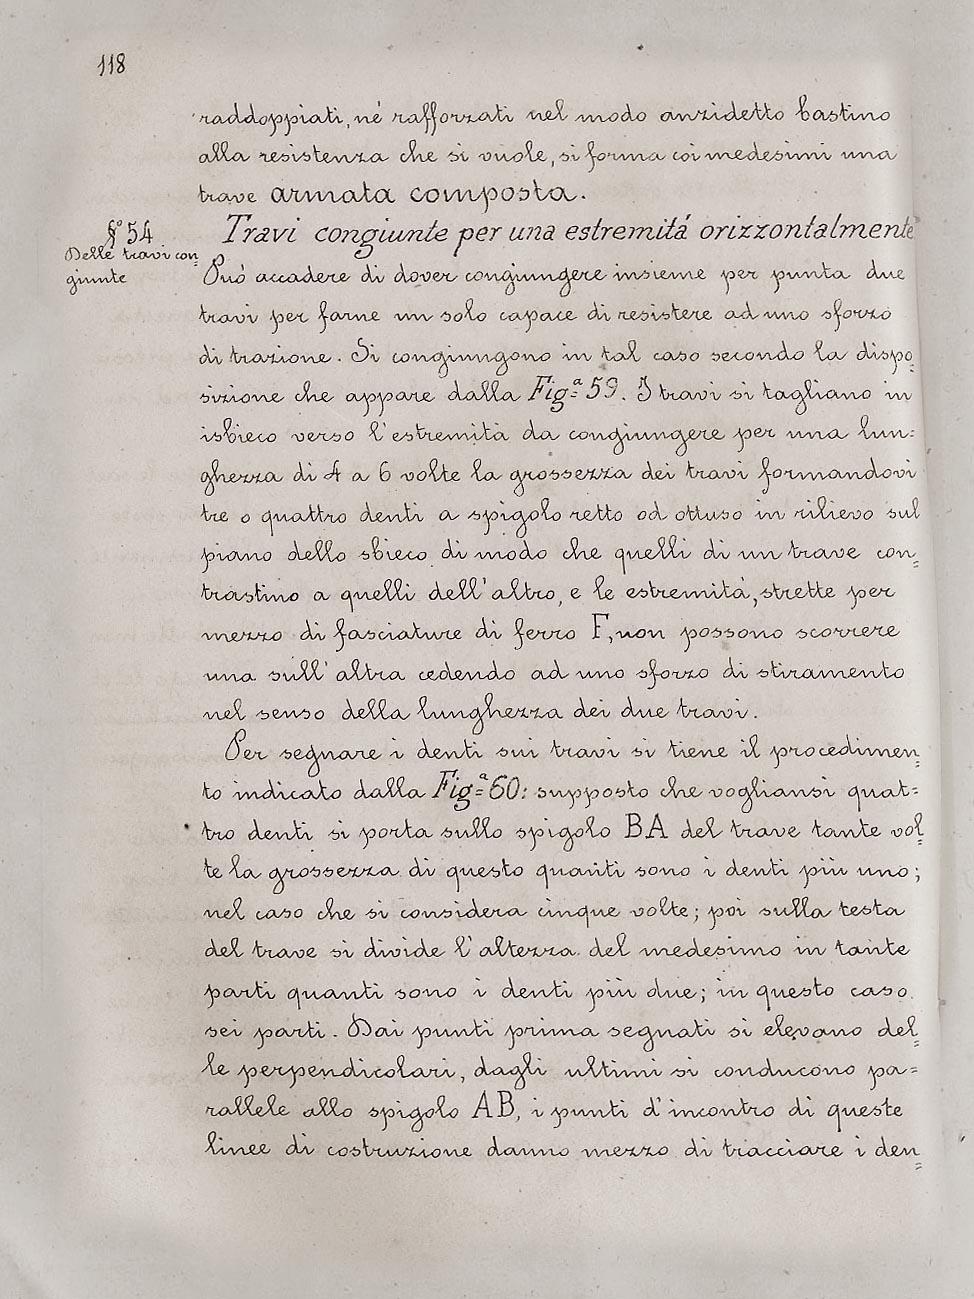 118
raddoppiati, nè rafforzati nel modo anzidetto bastino
alla resistenza che si vuole, si forma coi medesimi una
trave armata composta.
§º 54
Delle travi con=
giunte
Travi congiunte per una estremitá orizzontalmente
Può accadere di dover congiungere insieme per punta due
travi per farne un solo capace di resistere ad uno sforzo
di trazione. Si congiungono in tal caso secondo la dispo=
sizione che appare dalla Figª 59. I travi si tagliano in
isbieco verso l'estremità da congiungere per una lun=
ghezza di 4 a 6 volte la grossezza dei travi formandovi
tre o quattro denti a spigolo retto od ottuso in rilievo sul
piano dello sbieco di modo che quelli di un trave con=
trastino a quelli dell'altro, e le estremità, strette per
mezzo di fasciature di ferro F, non possono scorrere
una sull'altra cedendo ad uno sforzo di stiramento
nel senso della lunghezza dei due travi.
Per segnare i denti sui travi si tiene il procedimen=
to indicato dalla Figª 60: supposto che vogliansi quat=
tro denti si porta sullo spigolo BA del trave tante vol=
te la grossezza di questo quanti sono i denti più uno;
nel caso che si considera cinque volte; poi sulla testa
del trave si divide l'altezza del medesimo in tante
parti quanti sono i denti più due; in questo caso
sei parti. Dai punti prima segnati si elevano del=
le perpendicolari, dagli ultimi si conducono pa=
rallele allo spigolo AB, i punti d'incontro di queste
linee di costruzione danno mezzo di tracciare i den=